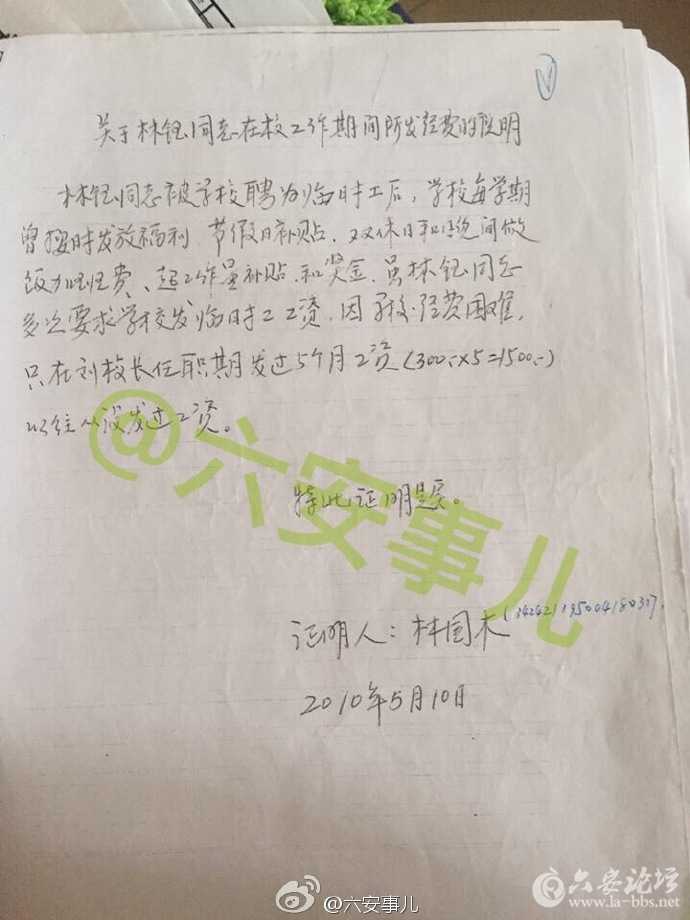 关于林钰同志在校工作期间所发经费的说明
林钰同志被学校聘为临时工后，学校每学期
曾按时发放福利、节假日补贴、双休日和晚间做
饭加班费、超工作量补贴、和奖金。虽林钰同志
多次要求学校发临时工工资，因学校经费困难，
只在刘校长任职期发过5个月工资（300.-×5=1500.-）
以往从没发过工资。
特此证明
证明人：林国木
2010年5月10日
@六安事儿
@六安事儿
六安论坛
www.la-bbs.net